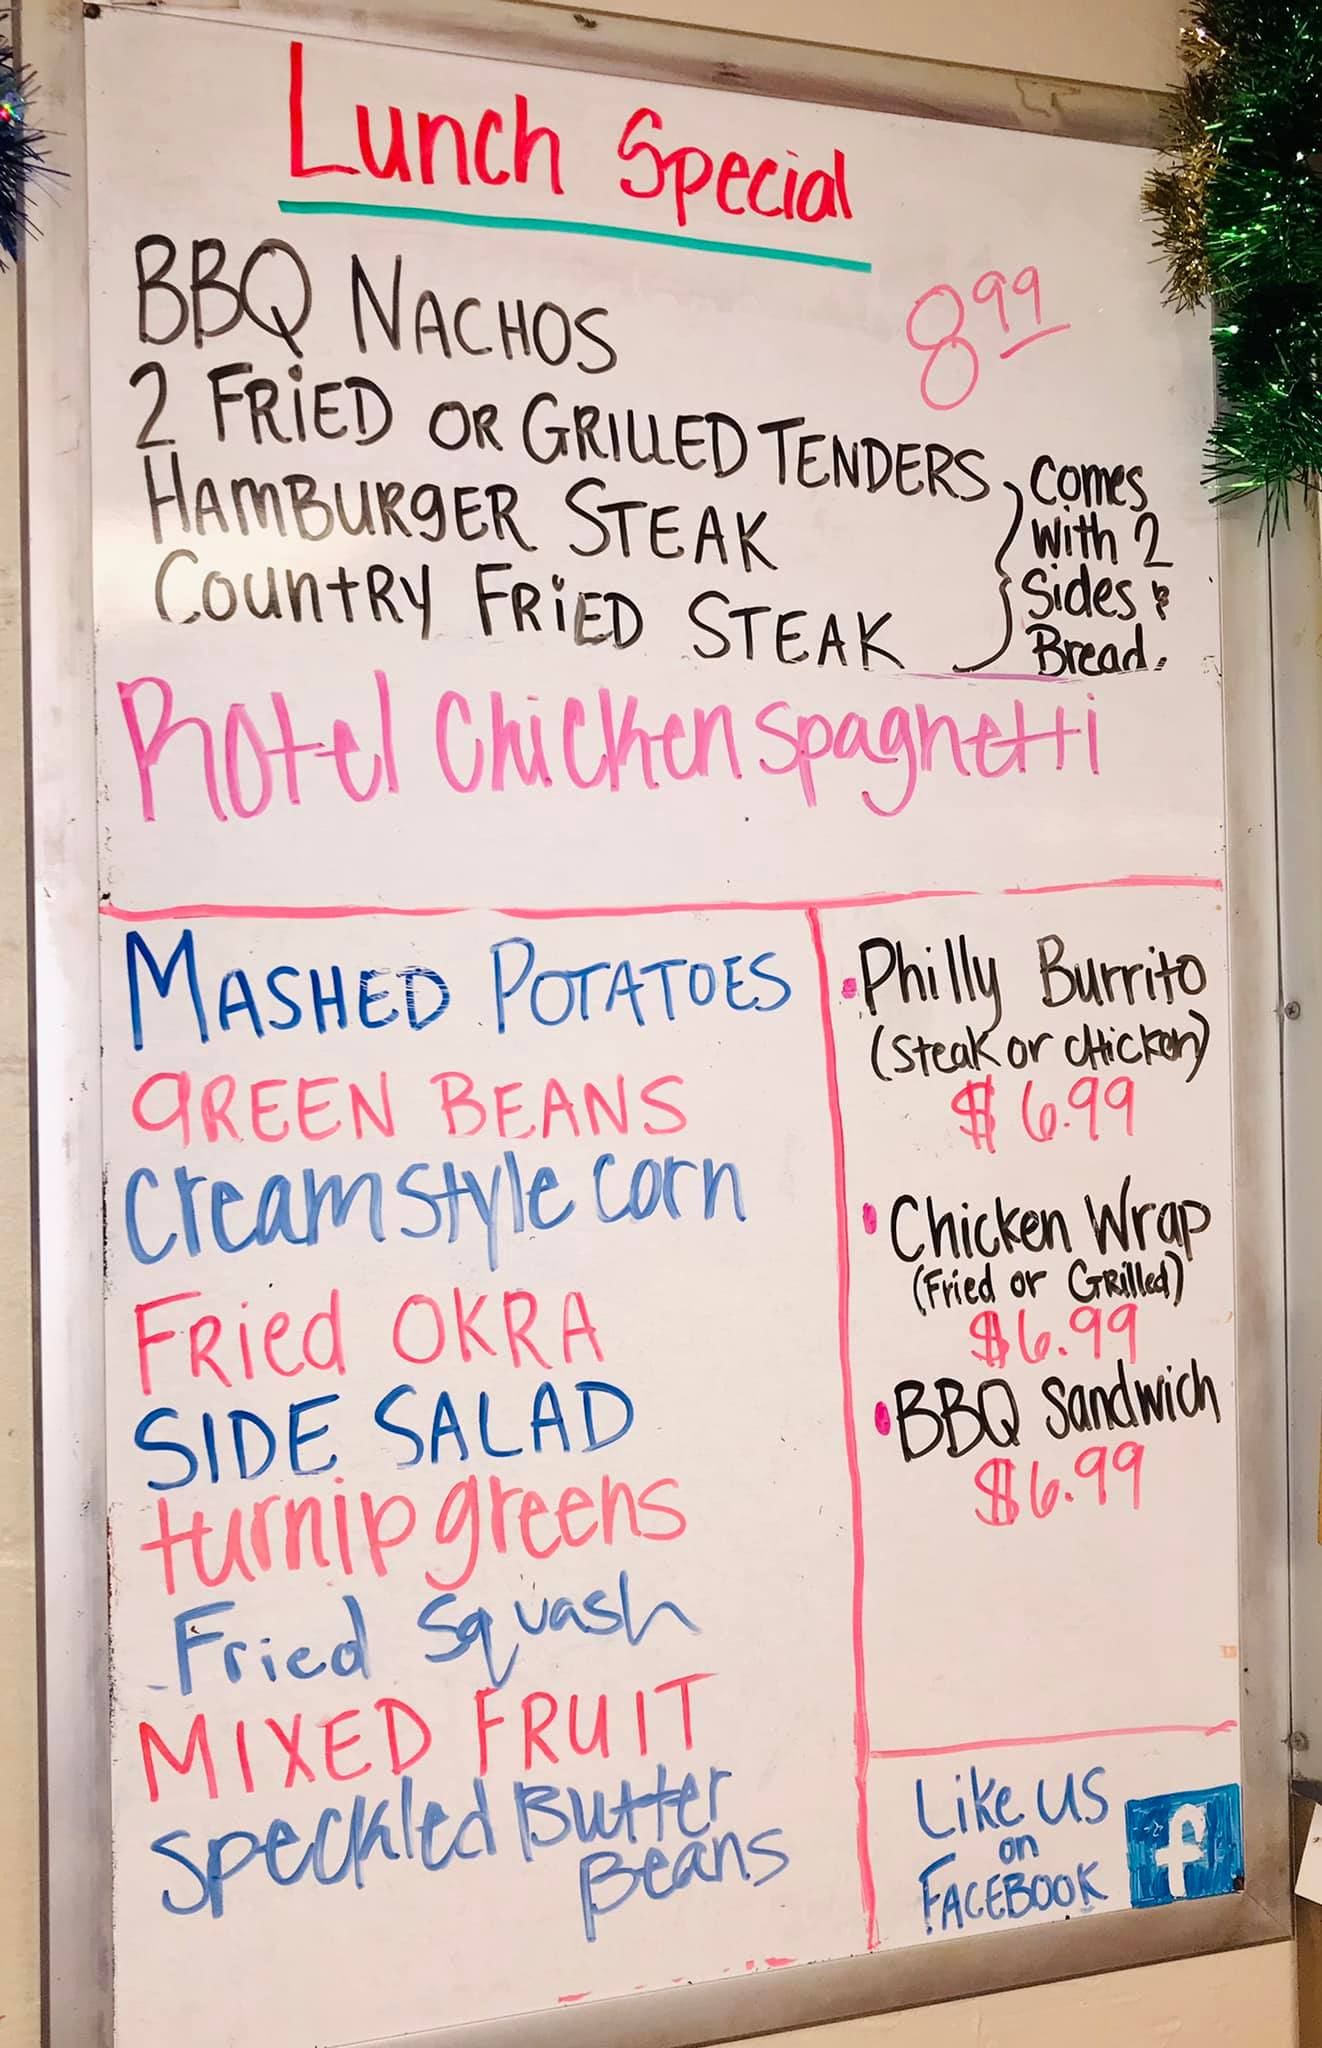 Lunch Special
BBQ NACHOS
8.99
2 FRiED OR GRILLED TENDERS
HAMBURGER STEAK
COUNTRY FRiED STEAK
Comes
with 2
Sides &
Bread.
Rotel Chicken Spaghetti
MASHED POTATOES
GREEN BEANS
Creamstyle Corn
FRied OKRA
SIDE SALAD
turnip greens
Fried Squash
MIXED FRUIT
Speckled Butter
Beans
Philly Burrito
(Steak or Chicken)
$6.99
Chicken Wrap
(Fried or Grilled)
$6.99
BBQ Sandwich
$6.99
Like us
on
FACEBOOK
f